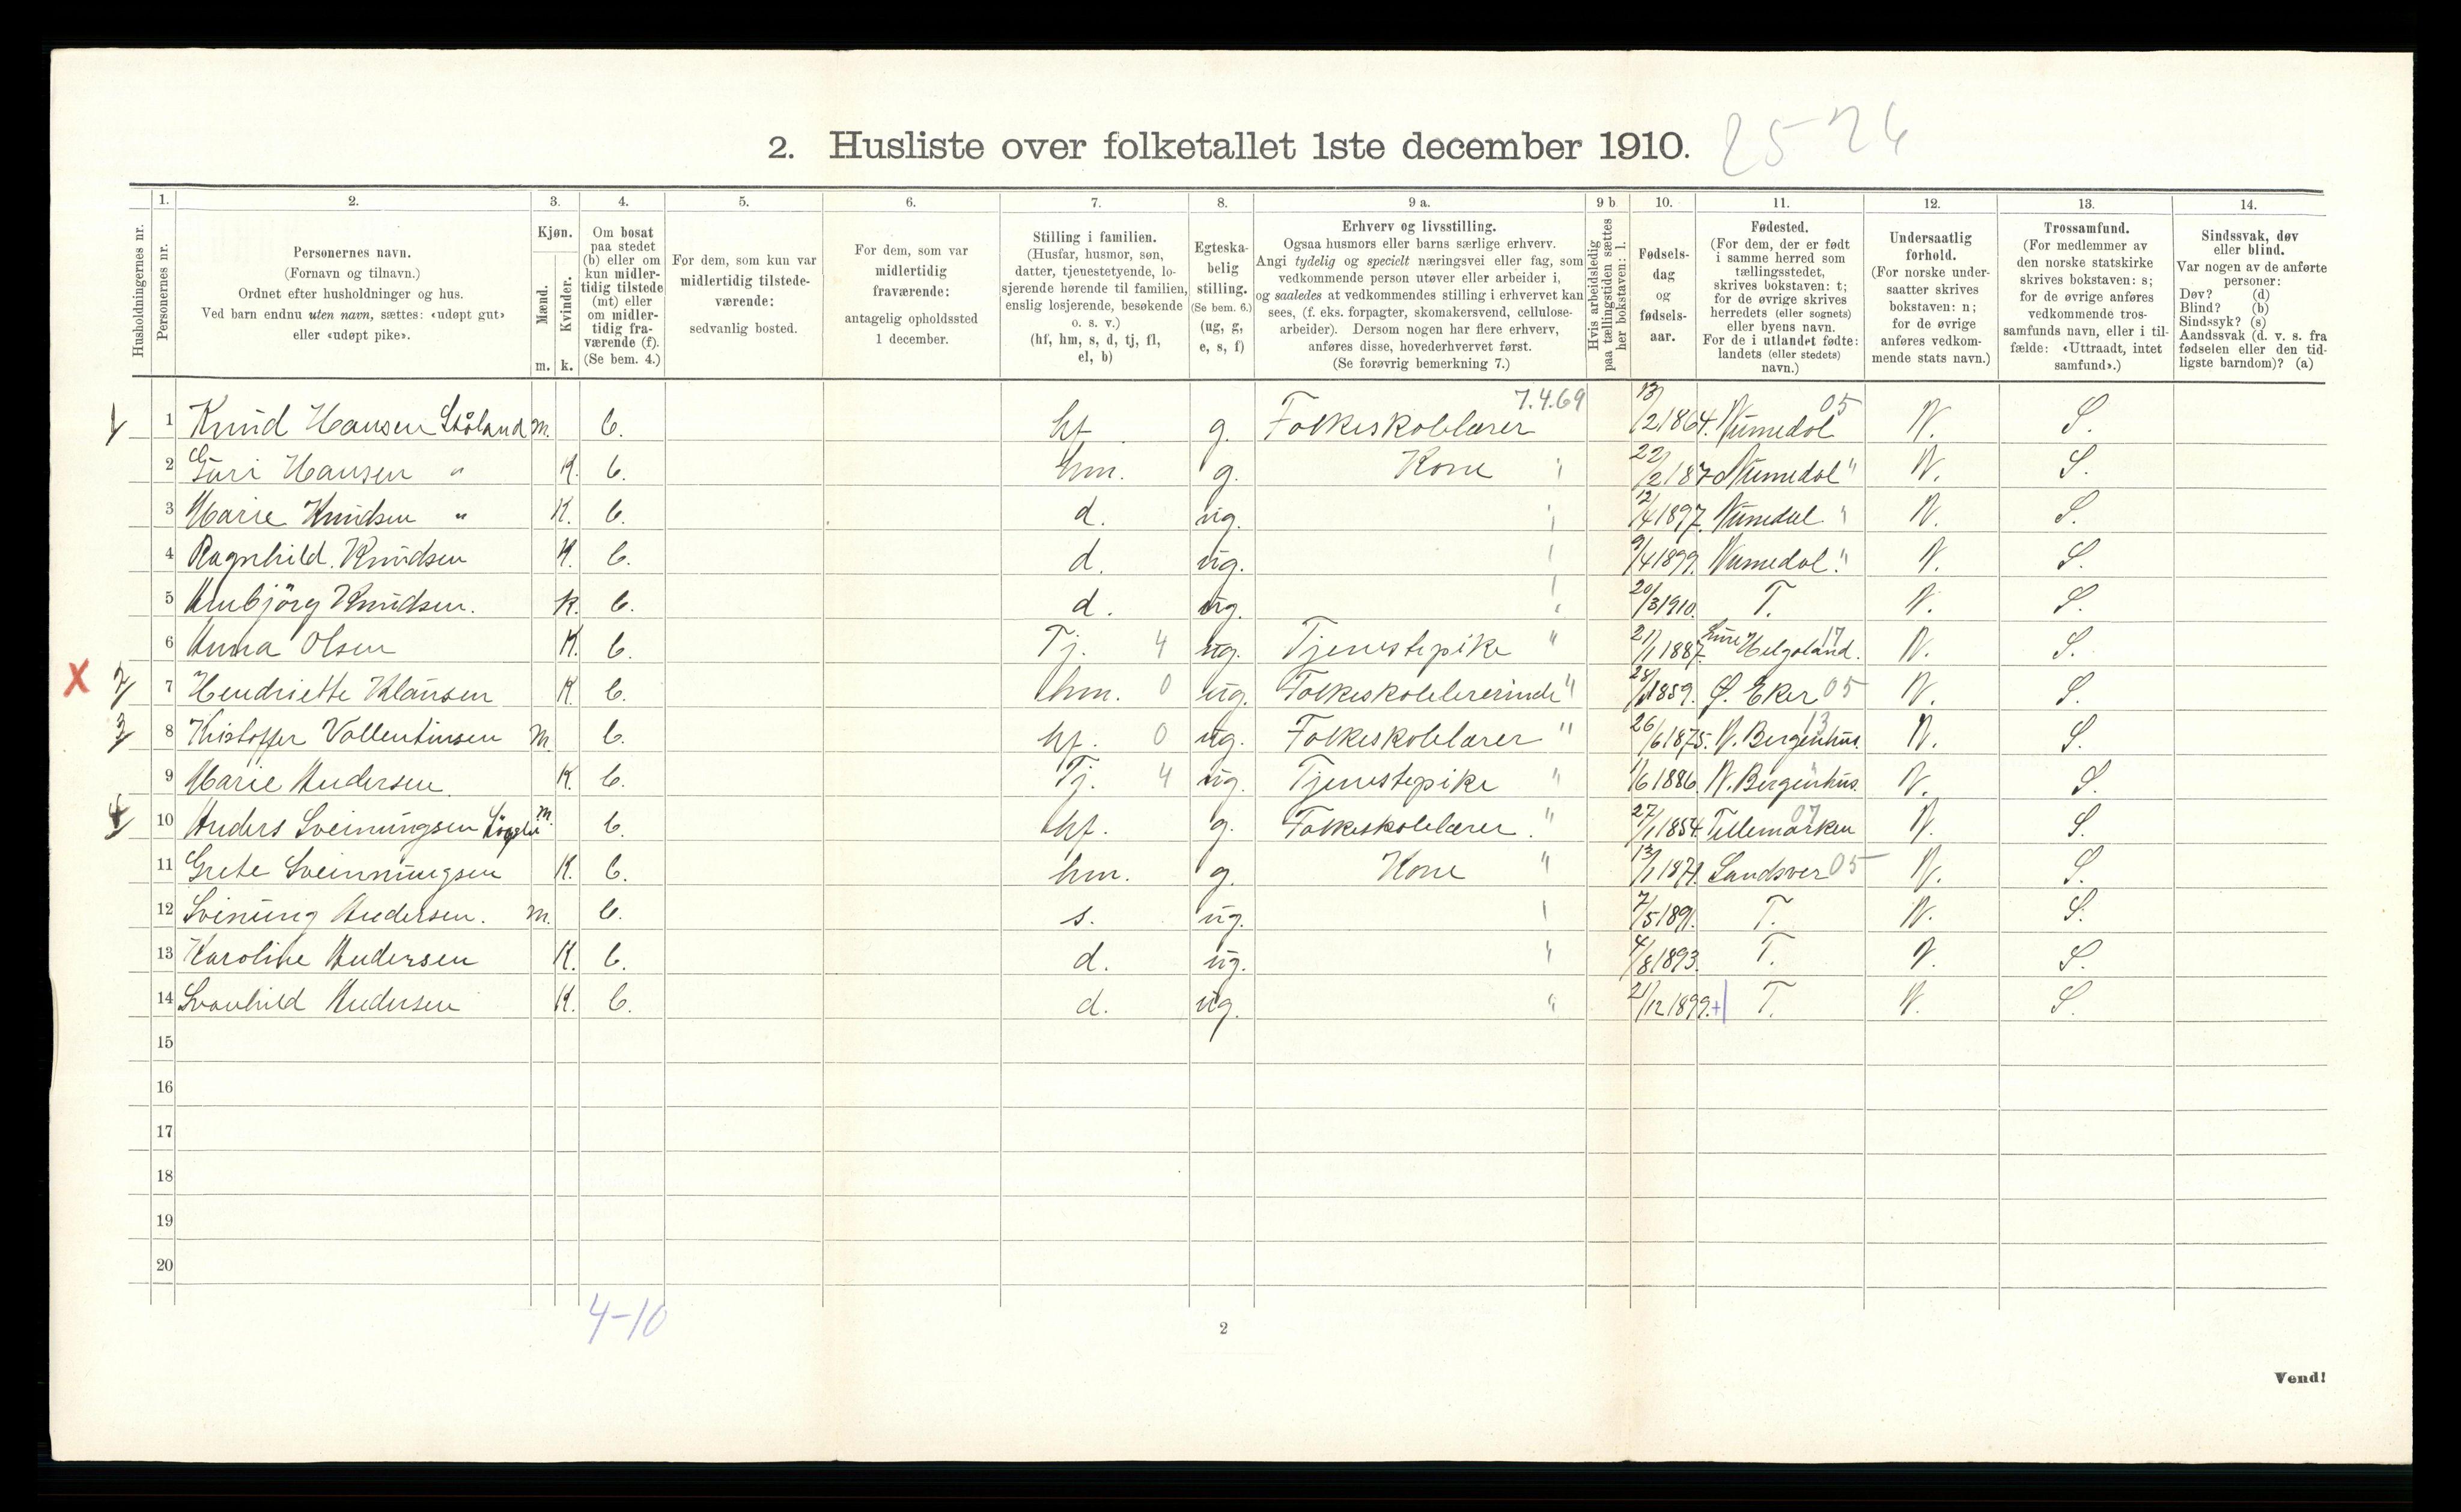 2. Husliste over folketallet 1ste december 1910. 25 26
Husholdningernes nr.
1.
Personernes nr.
2.
Personernes navn.
(Fornavn og tilnavn.)
Ordnet efter husholdninger og hus.
Ved barn endnu uten navn, sættes: «udøpt gut»
eller «udøpt pike».
3.
Kjøn.
Mænd.
Kvinder.
m. k.
4.
Om bosat
paa stedet
(b) eller om
kun midler-
tidig tilstede
(mt) eller
om midler-
tidig fra-
værende (f).
(Se bem. 4.)
5.
For dem, som kun var
midlertidig tilstede-
værende:
sedvanlig bosted.
6.
For dem, som var
midlertidig
fraværende:
antagelig opholdssted
1 december.
7.
Stilling i familien.
(Husfar, husmor, søn,
datter, tjenestetyende, lo-
sjerende hørende til familien,
enslig losjerende, besøkende
o. s. v.)
(hf, hm, s, d, tj, fl,
el, b)
8.
Egteska-
belig
stilling.
(Se bem. 6.)
(ug, g,
e, s, f)
9 a.
Erhverv og livsstilling.
Ogsaa husmors eller barns særlige erhverv.
Angi tydelig og specielt næringsvei eller fag, som
vedkommende person utøver eller arbeider i,
og saaledes at vedkommendes stilling i erhvervet kan
sees, (f. eks. forpagter, skomakersvend, cellulose-
arbeider). Dersom nogen har flere erhverv,
anføres disse, hovederhvervet først.
(Se forøvrig bemerkning 7.)
9 b
Hvis arbeidsledig
paa tællingstiden sættes
her bokstaven: l.
10.
Fødsels-
dag
og
fødsels-
aar.
11.
Fødested.
(For dem, der er født
i samme herred som
tællingsstedet,
skrives bokstaven: t;
for de øvrige skrives
herredets (eller sognets)
eller byens navn.
For de i utlandet fødte:
landets (eller stedets)
navn.)
12.
Undersaatlig
forhold.
(For norske under-
saatter skrives
bokstaven: n;
for de øvrige
anføres vedkom-
mende stats navn.)
13.
Trossamfund.
(For medlemmer av
den norske statskirke
skrives bokstaven: s;
for de øvrige anføres
vedkommende tros-
samfunds navn, eller i til-
fælde: «Uttraadt, intet
samfund».)
14.
Sindssvak, døv
eller blind.
Var nogen av de anførte
personer:
Døv? (d)
Blind? (b)
Sindssyk? (s)
Aandssvak (d. v. s. fra
fødselen eller den tid-
ligste barndom)? (a)
7.4.69
1 1 Knud Hansen Ståland m. b. hf. g. Folkeskolelærer 13/2 1864. Numedal 05 N. S.
2 Guri Hansen " K. b. hm. g. Kone " 22/2 187 Numedal " N. S.
3 Marie Knudsen " K. b. d. ug. " 12/4 1897. Numedal " N. S.
4 Ragnhild Knudsen K. b. d. ug. " 9/4 1899. Numedal " N. S.
5 Anbjörg Knudsen. K. b. d. ug. " 20/3 1910. T. N. S.
6 Anna Olsen K. b. Tj. 4 ug. Tjenestepike " 21/1 1887. Helgoland. 17 N. S.
X 2 7 Hendriette Klausen K. b. hm. 0 ug. Folkeskolelererinde " 28/1 1859. Ø. Eker 05 N. S.
3 8 Kristoffer Vallentinsen m. b. hf. 0 ug. Folkeskolelærer " 26/6 1875. N. Bergenhus. 13 N. S.
9 Marie Andersen. K. b. Tj. 4 ug. Tjenestepike " 1/6 1886. N. Bergenhus. " N. S.
4 10 Anders Sveinungsen m. b. hf. g. Folkeskolelærer. " 27/1 1854. Tellemarken 07 N. S.
11 Grete Sveinnungsen K. b. hm. g. Kone " 13/1 1871. Sandsver 05 N. S.
12 Svinung Andersen. m. b. s. ug. " 7/5 1891. T. N. S.
13 Karoline Andersen K. b. d. ug. " 4/8 1893. T. N. S.
14 Svanhild Andersen K. b. d. ug. " 21/12 1899. + T. N. S.
15
16
17
18
19
20
4-10
2
Vend!